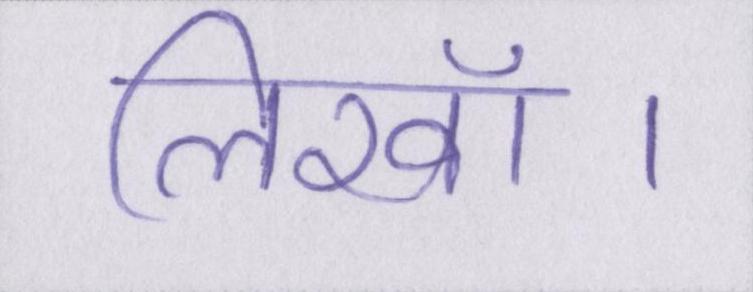 लिखॉ ।